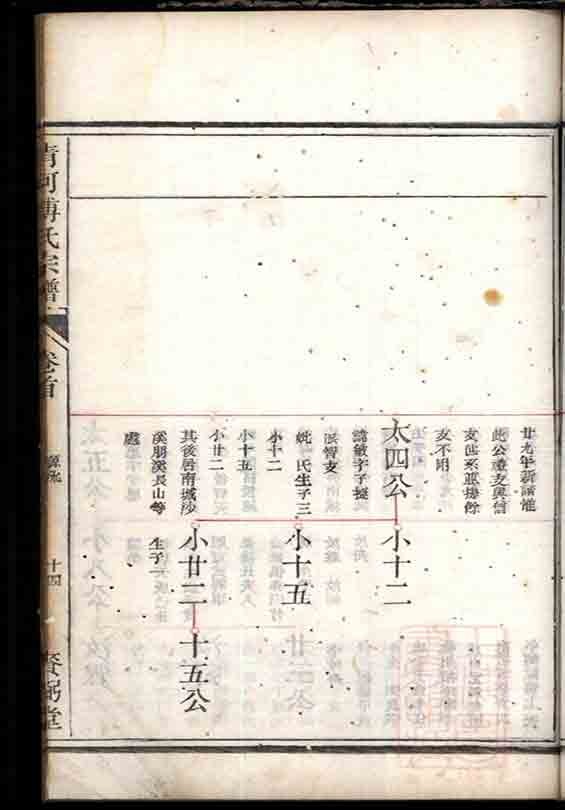 廿九年新譜惟
此公禮支與信
支世系聯接餘
支不明
太四公
諱敏字子捷
派智支
妣 氏生子三
小十二
小十五
小廿二
其後居南城沙
溪朋溪長山等
處
小十二
小十五
小廿二
生子一
十五公
清河傅氏宗譜
卷首
源流
十四
堂